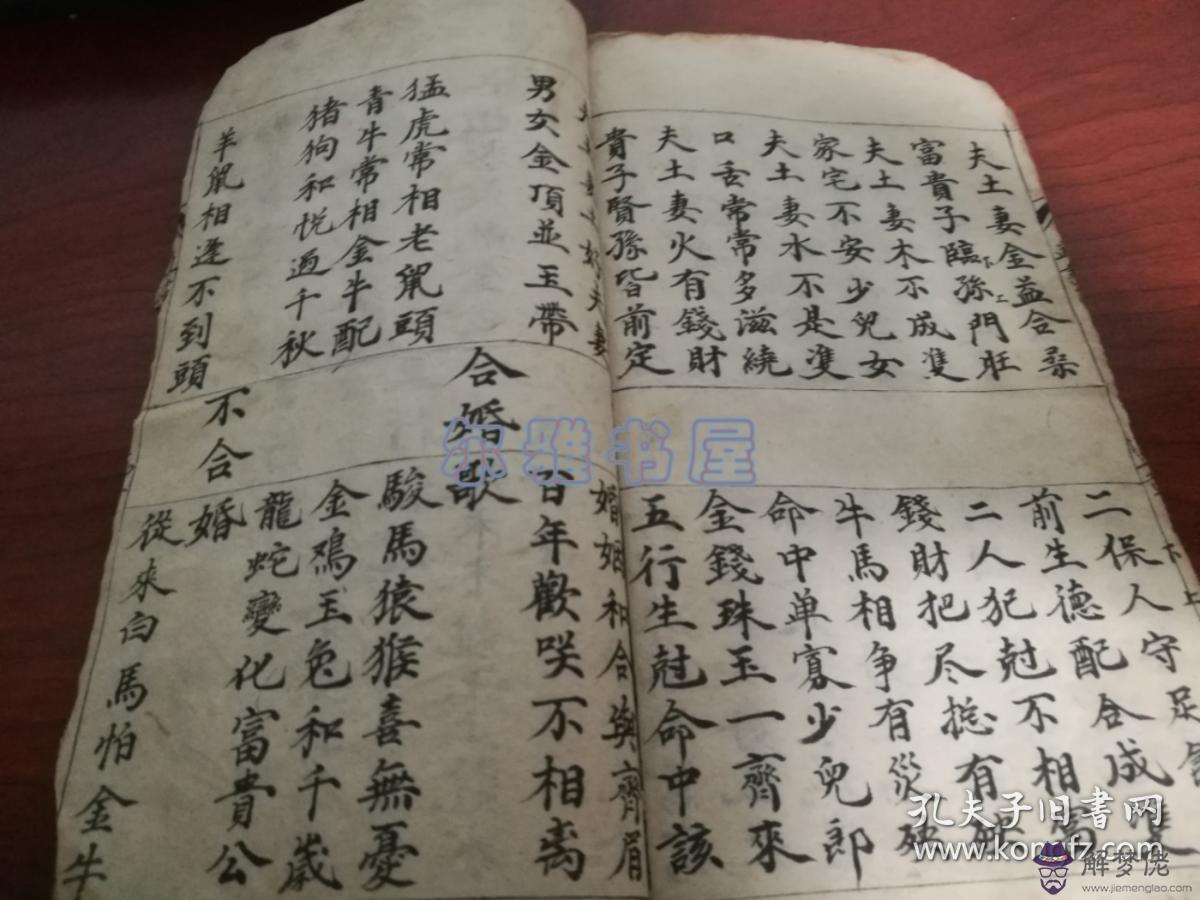 夫土妻金益合
富貴子臨孫門旺
下上
夫土妻木不成隻
家宅不安少兒女
夫土妻水不是隻
口舌常常多滋繞
夫土妻火有錢財
貴子賢孫皆前定
下上
二保人守足
前生德配合成隻
二人犯尅不相
錢財把尽揔有
牛馬相争有災殃
命中单寡少兒郎
金錢珠玉一齊來
五行生尅命中該
夫妻
婚姻和合與齊眉
男女金頂並玉帶
百年歡咲不相离
合婚歌
猛虎常相老鼠頭
駿馬猿猴喜無憂
青牛常相金牛配
金鷄玉兔和千歲
猪狗和悅過千秋
龍蛇變化富貴公
不合婚
羊鼠相逢不到頭
從來白馬怕金牛
尔雅书屋
孔夫子旧书网
www.kongfz.com
解梦佬
www.jiemenglao.com